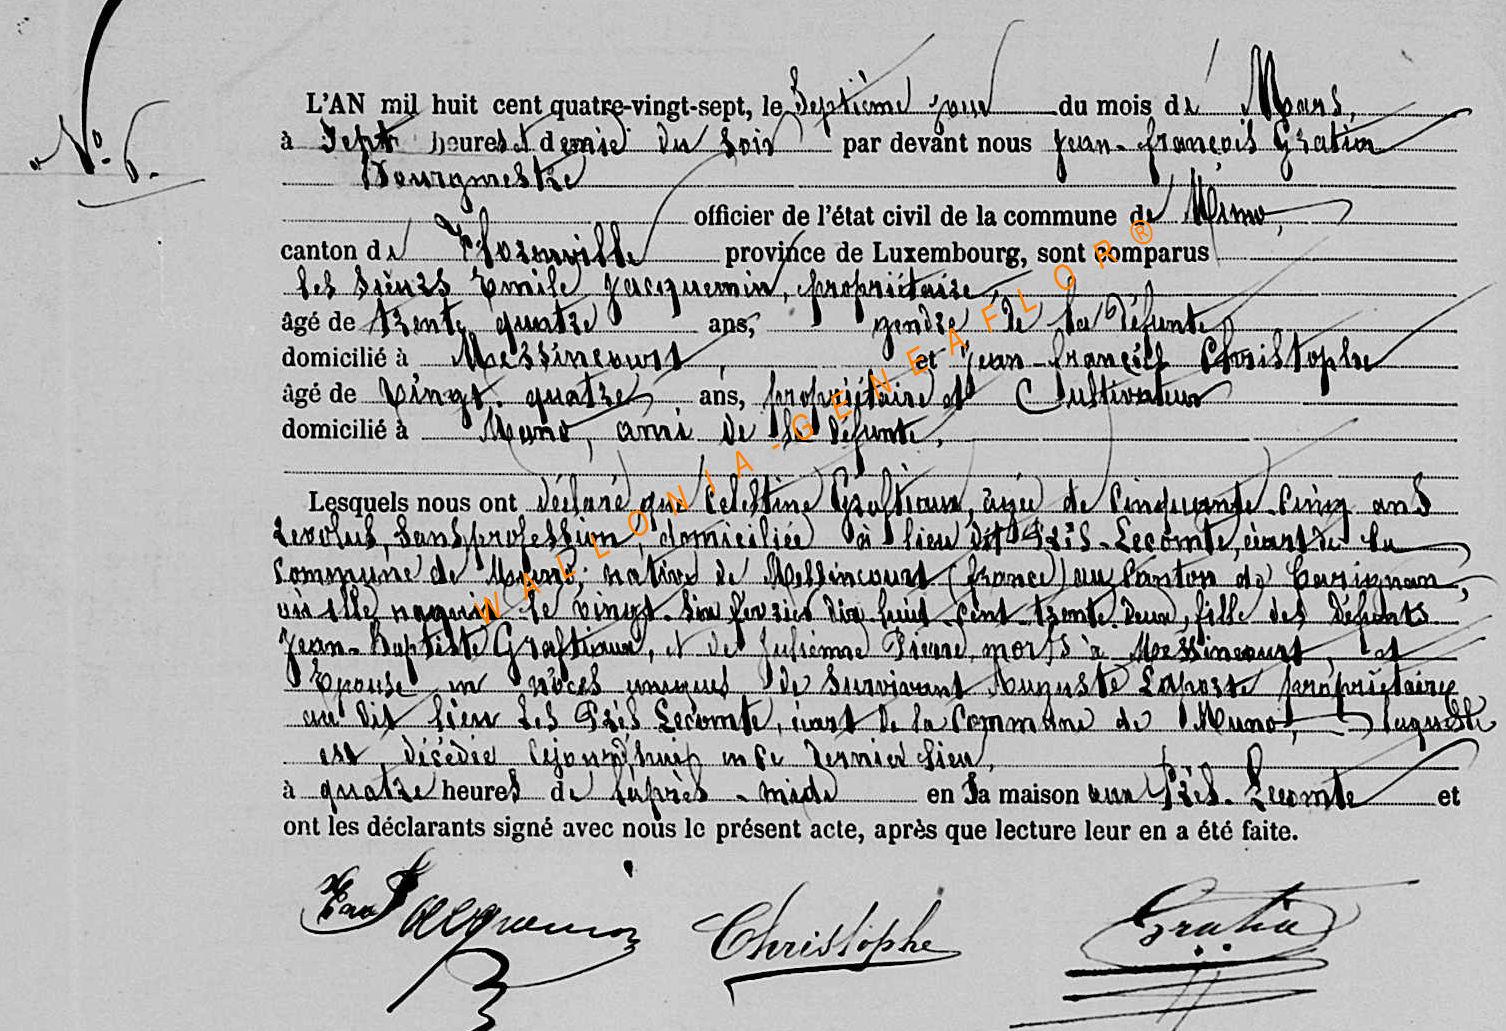 N° 6.
L'AN mil huit cent quatre-vingt-sept, le Septième jour du mois de Mars,
à Sept heures et demie du soir par devant nous Jean-françois Gratia
Bourgmestre
officier de l'état civil de la commune de Muno,
canton de Florenville province de Luxembourg, sont comparus
les sieurs Emile Jacquemin, propriétaire
âgé de trente quatre ans, gendre de la défunte
domicilié à Messincourt, et Jean-françois Christophe
âgé de Vingt-quatre ans, propriétaire et Cultivateur
domicilié à Muno, ami de la défunte,
Lesquels nous ont déclaré que Celestine Graftiaux, agée de Cinquante-cinq ans
revolus, sans profession, domiciliée à lieu dit Prés-Lecomte, écart de la
Commune de Muno, native de Messincourt (france) au Canton de Carignan,
où elle naquit le vingt-six fevrier dix huit cent trente deux, fille des défunts
Jean-Baptiste Graftiaux, et de Julienne Pierre, morts à Messincourt, et
Epouse en nôces uniques de survivant Auguste Laporte propriétaire
au dit lieu Les Prés Lecomte, écart de la Commune de Muno, laquelle
est décédée cejourd'hui en ce dernier lieu,
à quatre heures de l'après-midi en sa maison aux Prés-Lecomte et
ont les déclarants signé avec nous le présent acte, après que lecture leur en a été faite.
Jacquemin Christophe Gratia
WALLONIA-GENEAFLOR®